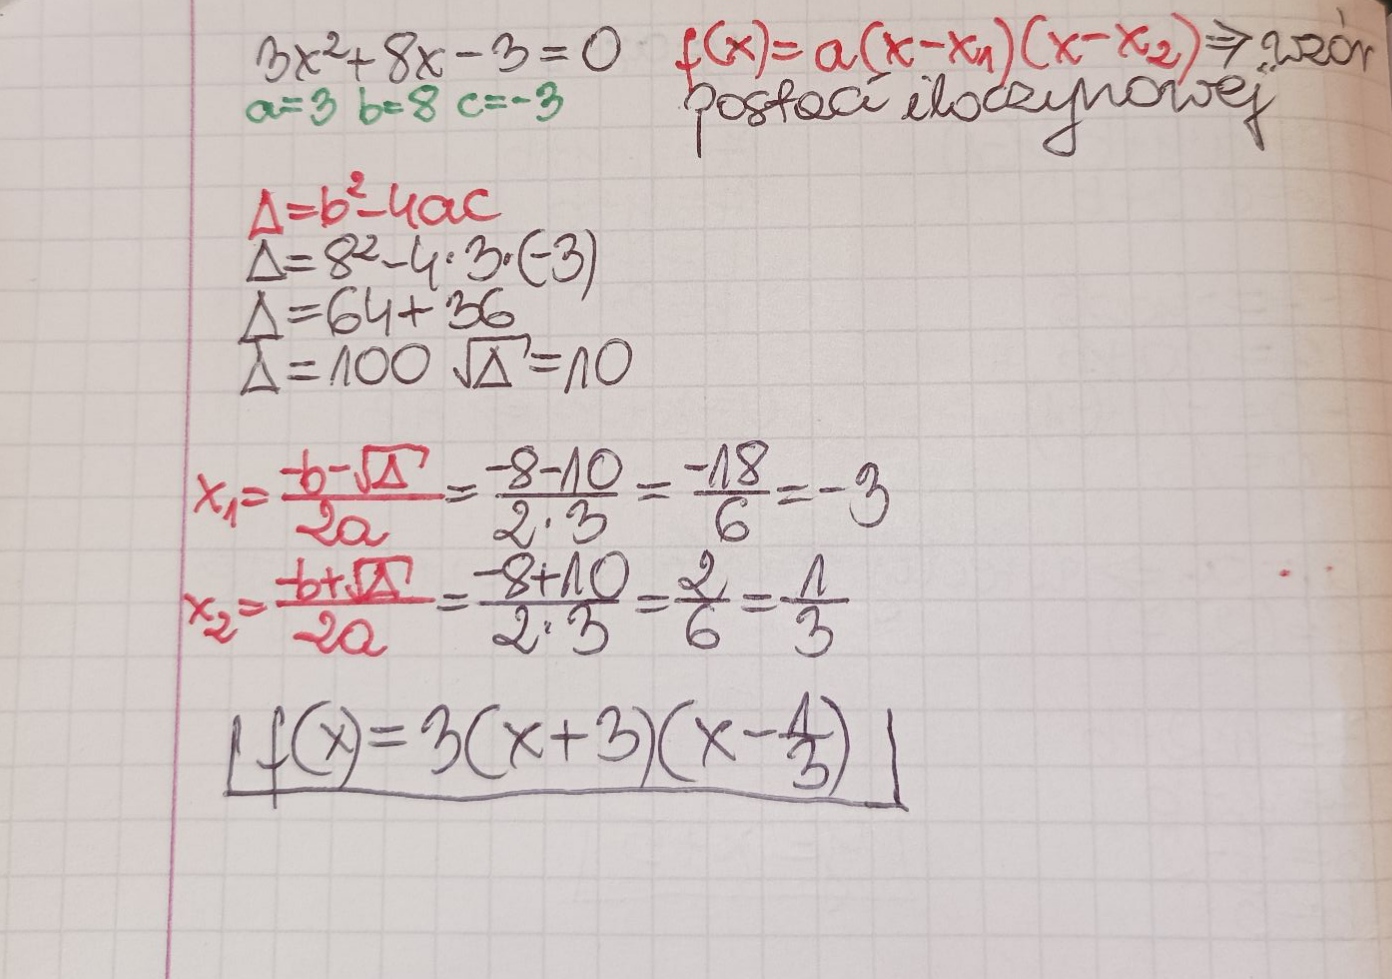 3x²+8x-3=0 f(x)=a(x-x₁)(x-x₂)⇒wzór
a=3 b=8 c=-3 postaci iloczynowej
Δ=b²-4ac
Δ=8²-4·3·(-3)
Δ=64+36
Δ=100 √Δ=10
x₁=(-b-√Δ)/(2a)=(-8-10)/(2·3)=(-18)/6=-3
x₂=(-b+√Δ)/(2a)=(-8+10)/(2·3)=2/6=1/3
f(x)=3(x+3)(x-1/3)